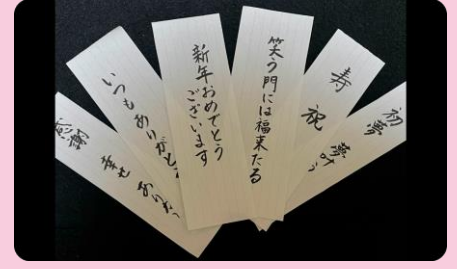 感謝
幸せ
いつもありがとう
新年おめでとう
ございます
笑う門には福来たる
寿
祝
初夢